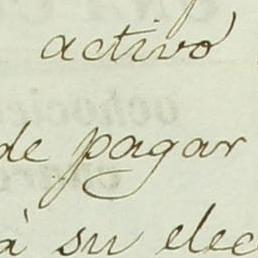 activo
de pagar
à su elec